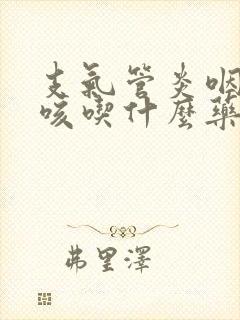 支氣管炎咽
咳喫什麼藥
弗里澤